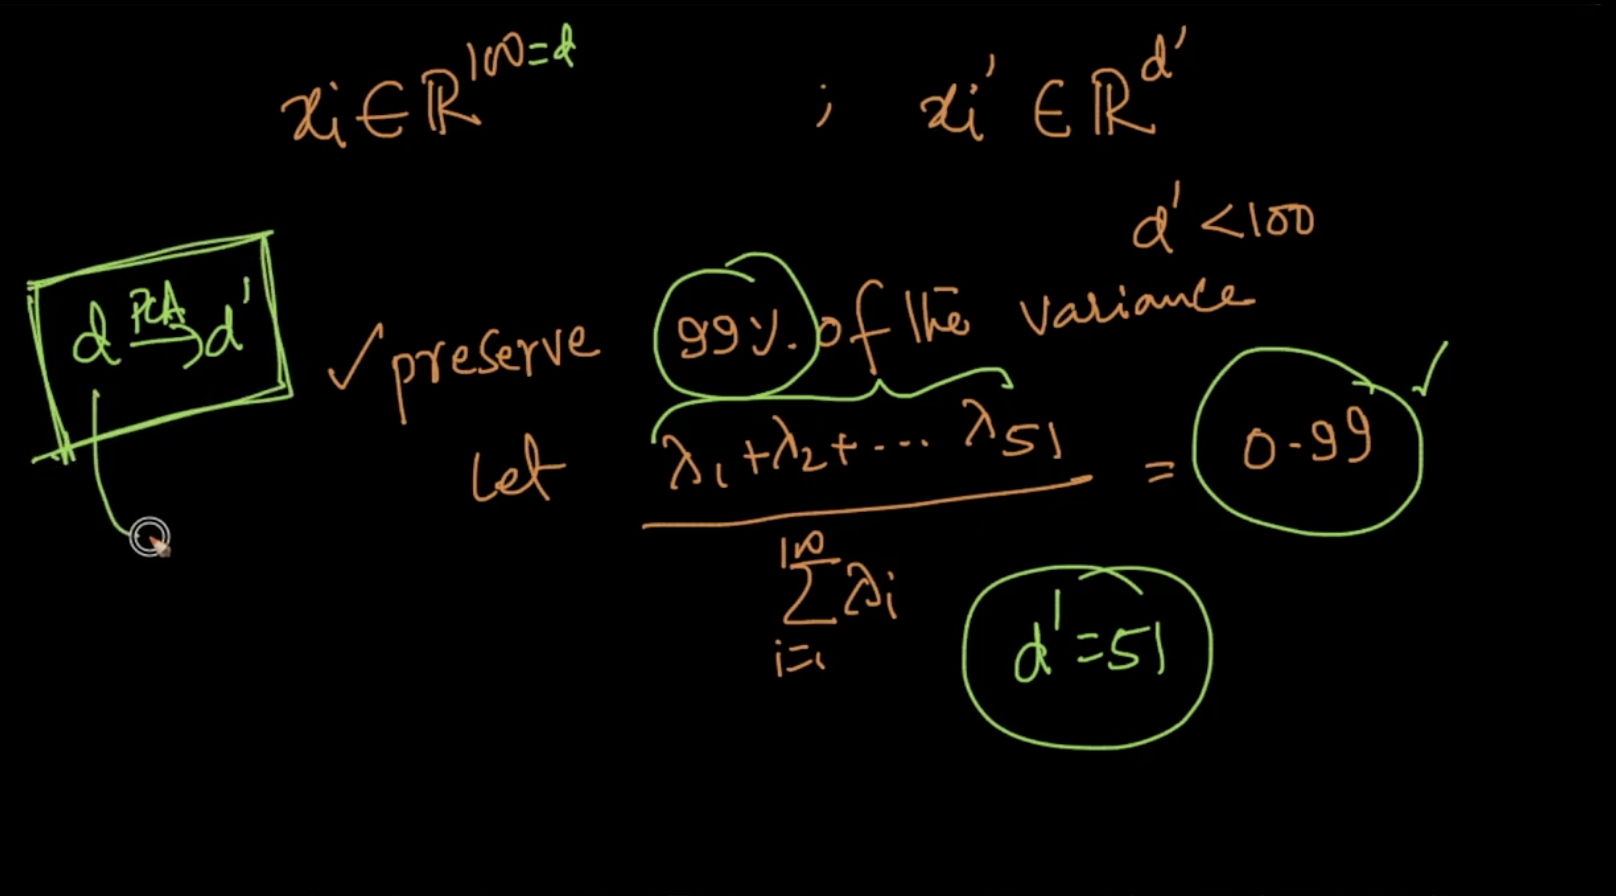 xi ∈ ℝ^100 = d ; xi' ∈ ℝ^d'
d' < 100
d PCA→ d' ✓ preserve 99% of the variance
Let λ1 + λ2 + ... λ51 / Σ_{i=1}^{100} λi = 0.99 ✓
d' = 51